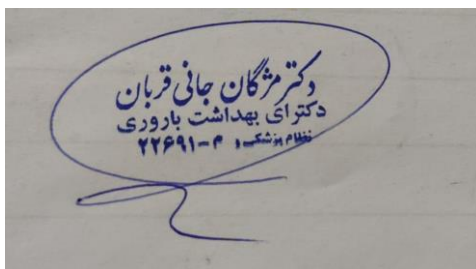 دکتر مژگان جانی قربان
دکترای بهداشت باروری
نظام پزشکی م-۲۲۶۹۱